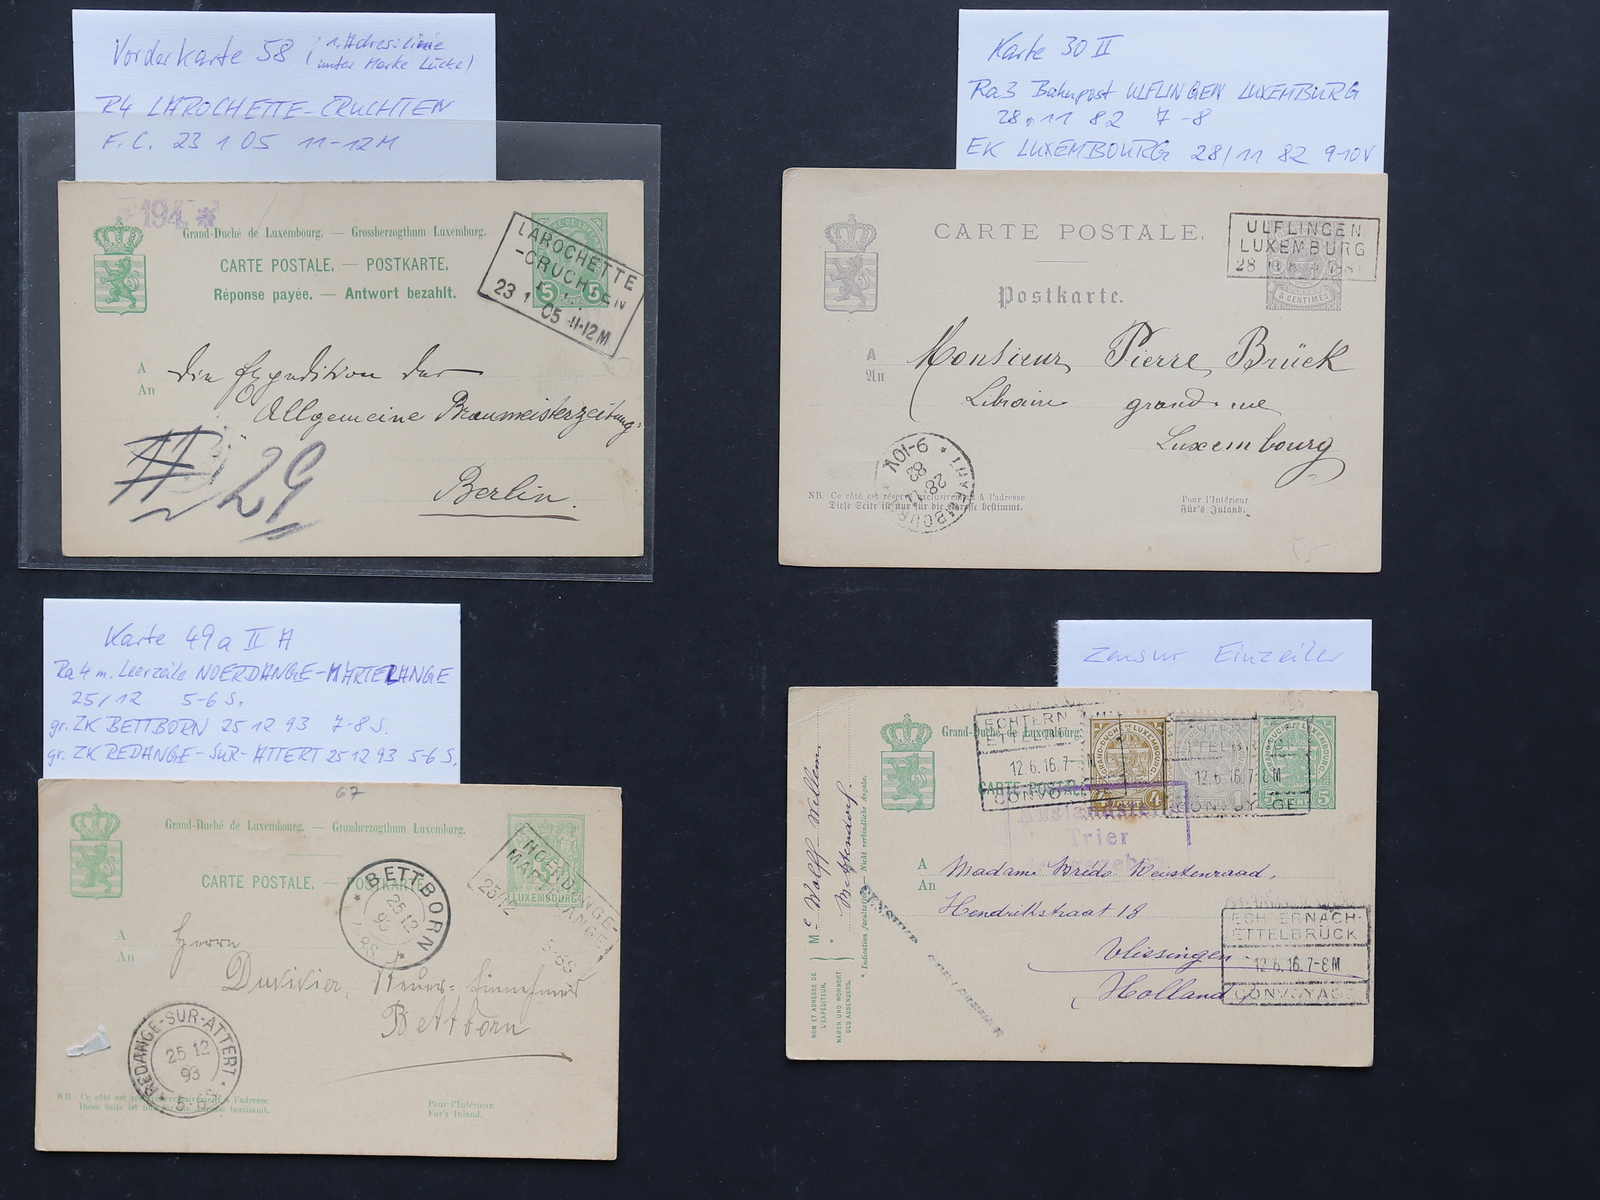 Vorderkarte 58 (1. Adresslinie
unter Marke Lücke)
R4 LAROCHETTE-CRUCHTEN
F.C. 23 1 05 11-12M
194 *
Grand-Duché de Luxembourg. — Grossherzogthum Luxemburg.
CARTE POSTALE. — POSTKARTE.
Réponse payée. — Antwort bezahlt.
5 5
LAROCHETTE
-CRUCHTEN
23 1 05 11-12M
A
An
die Expedition der
Allgemeine Braumeisterzeitung.
Berlin.
29
Karte 30 II
Ra3 Bahnpost ULFLINGEN LUXEMBURG
28.11 82 7-8
EK LUXEMBOURG 28/11 82 9-10V
CARTE POSTALE.
Postkarte.
ULFLINGEN
LUXEMBURG
28
5 CENTIMES
A
An
Monsieur Pierre Brück
Libraire grand rue
Luxembourg
LUXEMBOURG
28 11
82
9-10V
NB. Ce côté est réservé exclusivement à l'adresse
Diese Seite ist nur für die Adresse bestimmt.
Pour l'Intérieur
Für's Inland.
Karte 49a II A
Ra4 m. Leerzeile NOERDANGE-MARTELANGE
25/12 5-6 S.
gr. ZK BETTBORN 25 12 93 7-8 S.
gr. ZK REDANGE-SUR-ATTERT 25 12 93 5-6 S.
67
Grand-Duché de Luxembourg. — Grossherzogthum Luxemburg.
CARTE POSTALE. — POSTKARTE.
LUXEMBOURG
NOERDANGE-
MARTELANGE
25/12 5-6S
BETTBORN
25 12
93
7-8S
A
An
Herrn
Duvivier, Steuer-Einnehmer
Bettborn
REDANGE-SUR-ATTERT
25 12
93
5-6S
NB. Ce côté est réservé exclusivement à l'adresse
Diese Seite ist nur für die Adresse bestimmt.
Pour l'Intérieur
Für's Inland.
Zensur Einzeiler
Grand-Duché de Luxembourg.
CARTE POSTALE
ECHTERNACH-
ETTELBRÜCK
12.6.16.7-8M
CONVOYAGE
GRAND-DUCHÉ DE LUXEMBOURG
4
1
12.6.16.7-8M
CONVOYAGE
5
Auslandsstelle
Trier
Freigegeben
A
An
Madame Brédo Weustenraad,
Hendrikstraat 18
Vlissingen
Holland
ECHTERNACH-
ETTELBRÜCK
12.6.16.7-8M
CONVOYAGE
CENSURE
Mr Wolff-Willem
Bettendorf.
* Indication facultative. — Nicht verbindliche Angabe.
NOM ET ADRESSE DE
L'EXPÉDITEUR.
NAMEN UND WOHNORT
DES ABSENDERS.